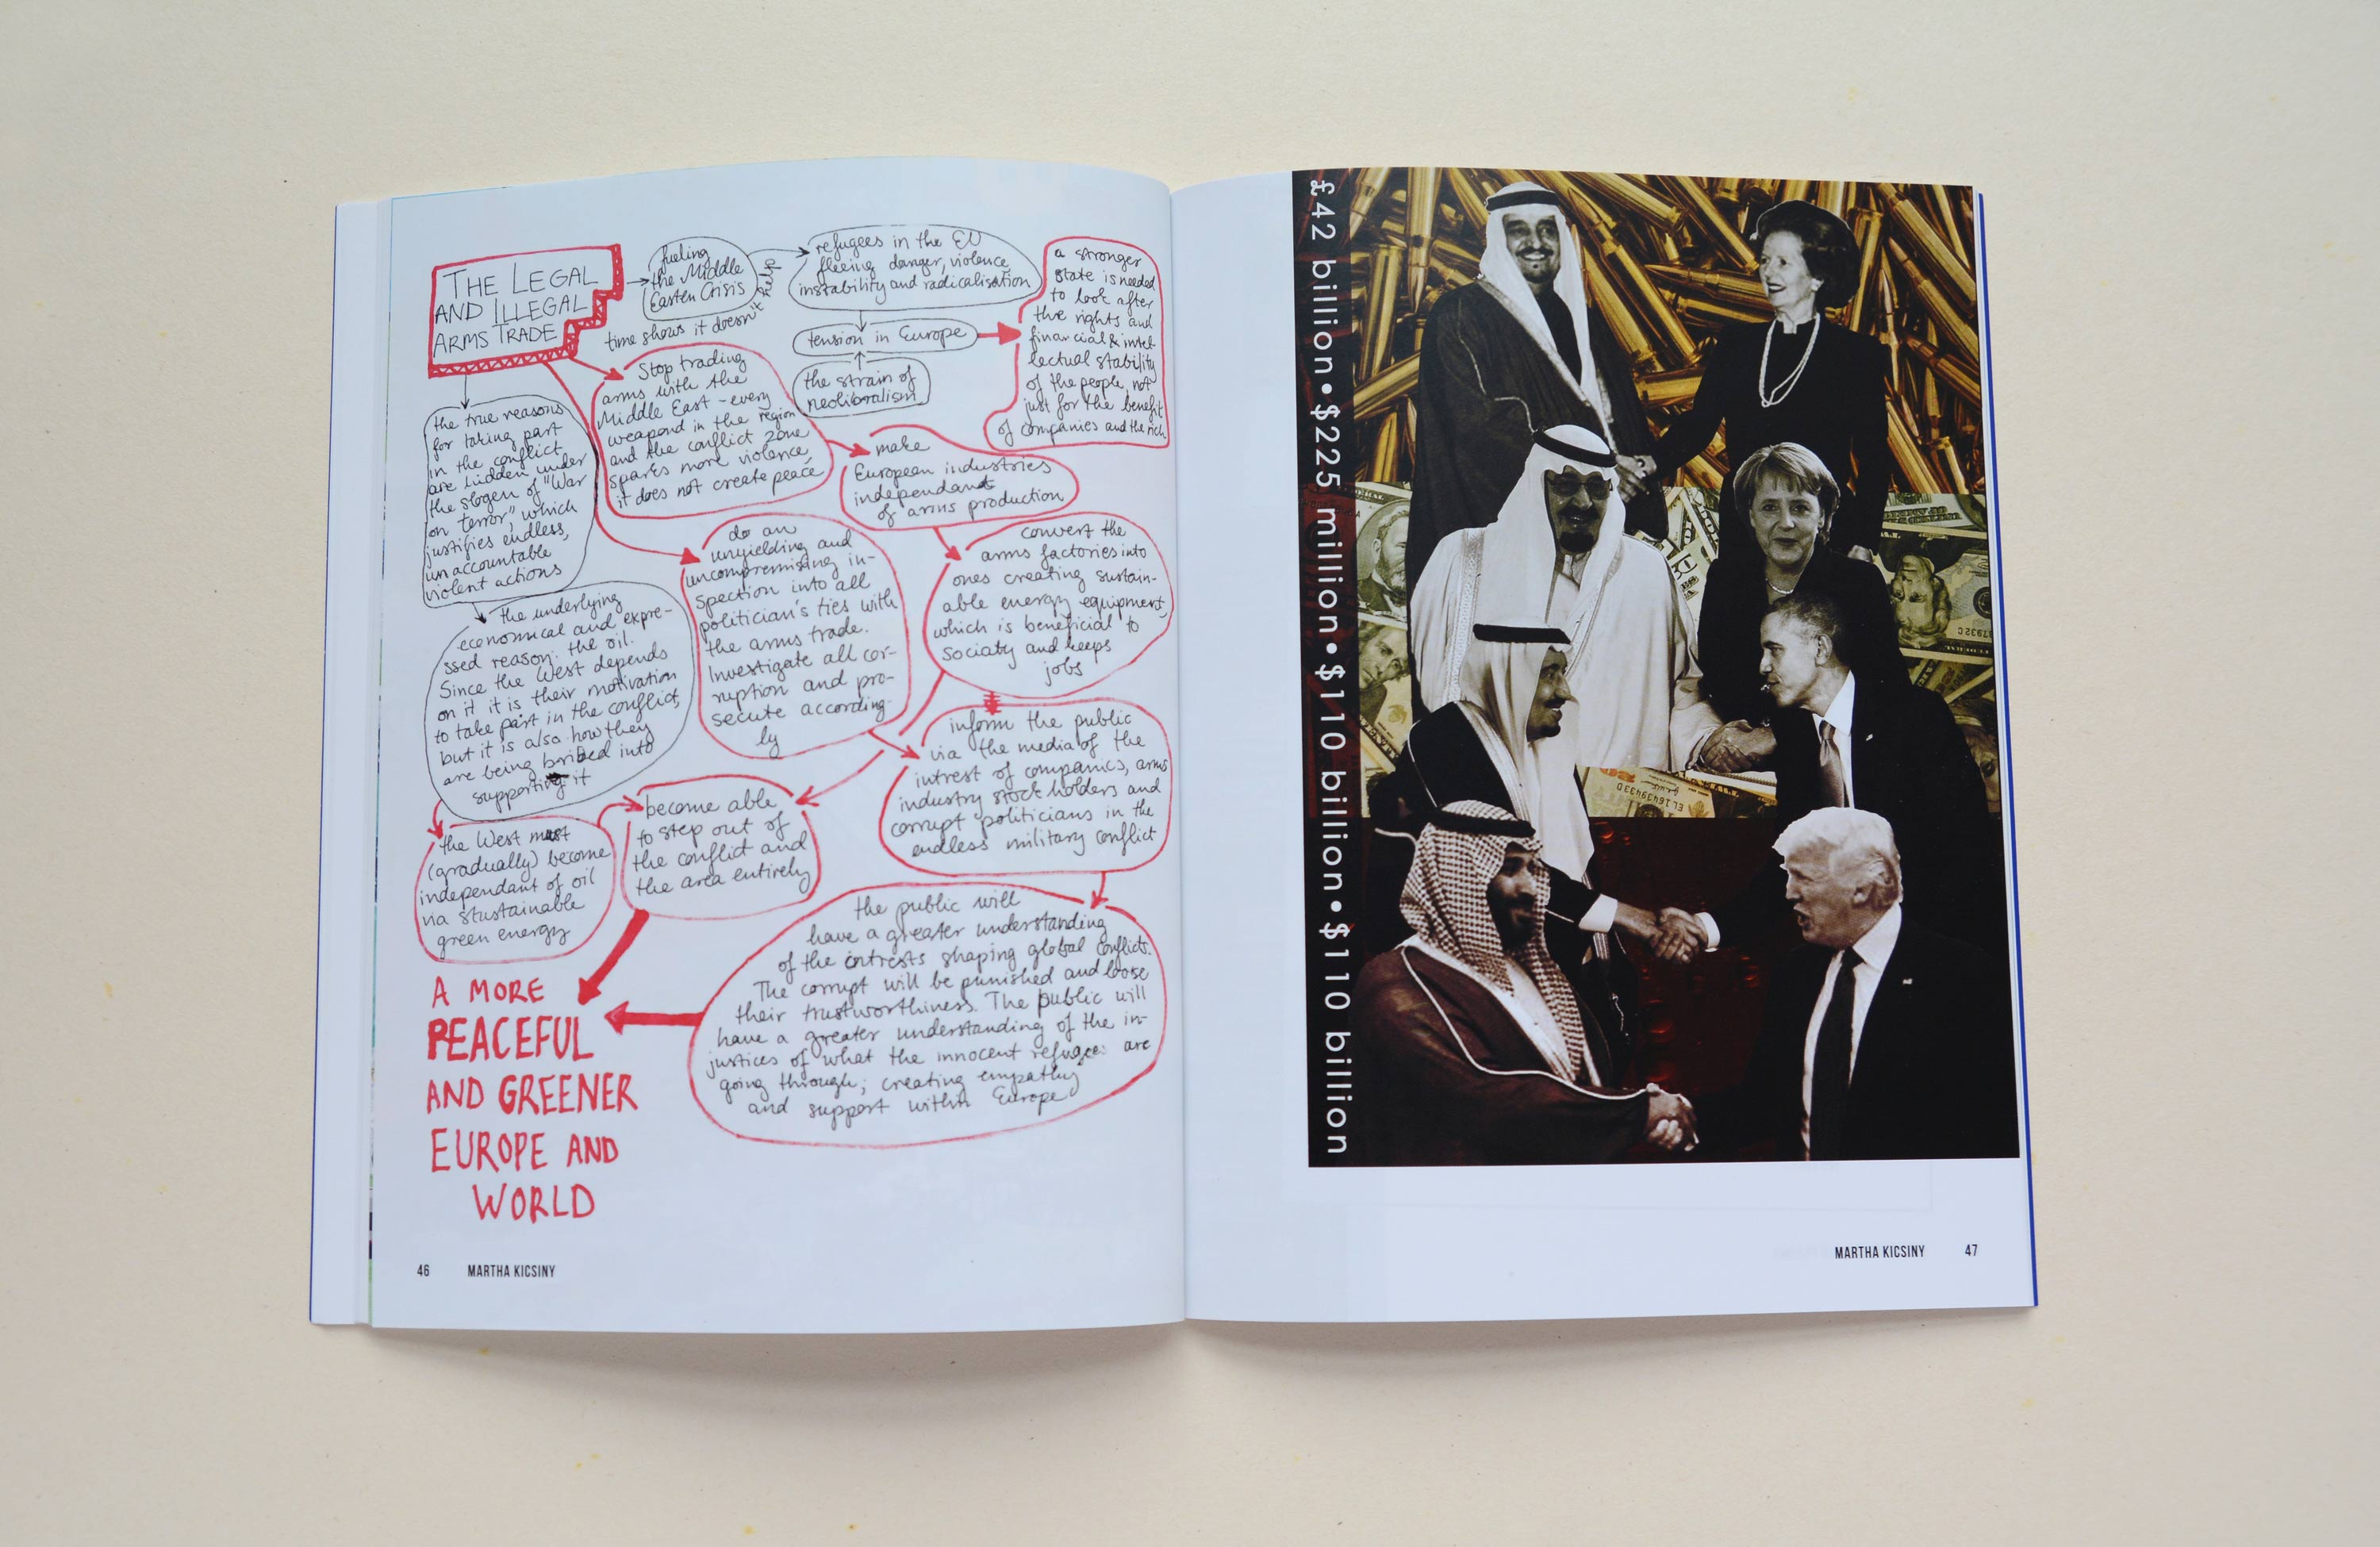 THE LEGAL
AND ILLEGAL
ARMS TRADE
fueling
the Middle
Easten Crisis
time shows it doesn't help
refugees in the EU
fleeing danger, violence
instability and radicalisation
tension in Europe
the strain of
neoliberalism
a stronger
state is needed
to look after
the rights and
financial & intel-
lectual stability
of the people, not
just for the benefit
of companies and the rich
the true reasons
for taking part
in the conflict
are hidden under
the slogen of "War
on terror", which
justifies endless,
unaccountable
violent actions
Stop trading
arms with the
Middle East - every
weapond in the region
and the conflict zone
sparks more violence,
it does not create peace
make
European industries
independant
of arms production
do an
unyielding and
uncompremising in-
spection into all
politician's ties with
the arms trade.
Investigate all cor-
ruption and pro-
secute according-
ly
convert the
arms factories into
ones creating sustain-
able energy equipment,
which is beneficial to
sociaty and keeps
jobs
the underlying
economical and expre-
ssed reason: the oil.
Since the West depends
on it it is their motivation
to take part in the conflict,
but it is also how they
are being bribed into
supporting it
inform the public
via the media of the
intrest of companies, arms
industry stock holders and
corrupt politicians in the
endless military conflict
the West must
(gradually) become
independant of oil
via stustainable
green energy
become able
to step out of
the conflict and
the area entirely
the public will
have a greater understanding
of the intrests shaping global conflicts.
The corrupt will be punished and loose
their trustworthiness. The public will
have a greater understanding of the in-
justices of what the innocent refugees are
going through; creating empathy
and support within Europe
A MORE
PEACEFUL
AND GREENER
EUROPE AND
WORLD
46 MARTHA KICSINY
£42 billion•$225 million•$110 billion•$110 billion
MARTHA KICSINY 47